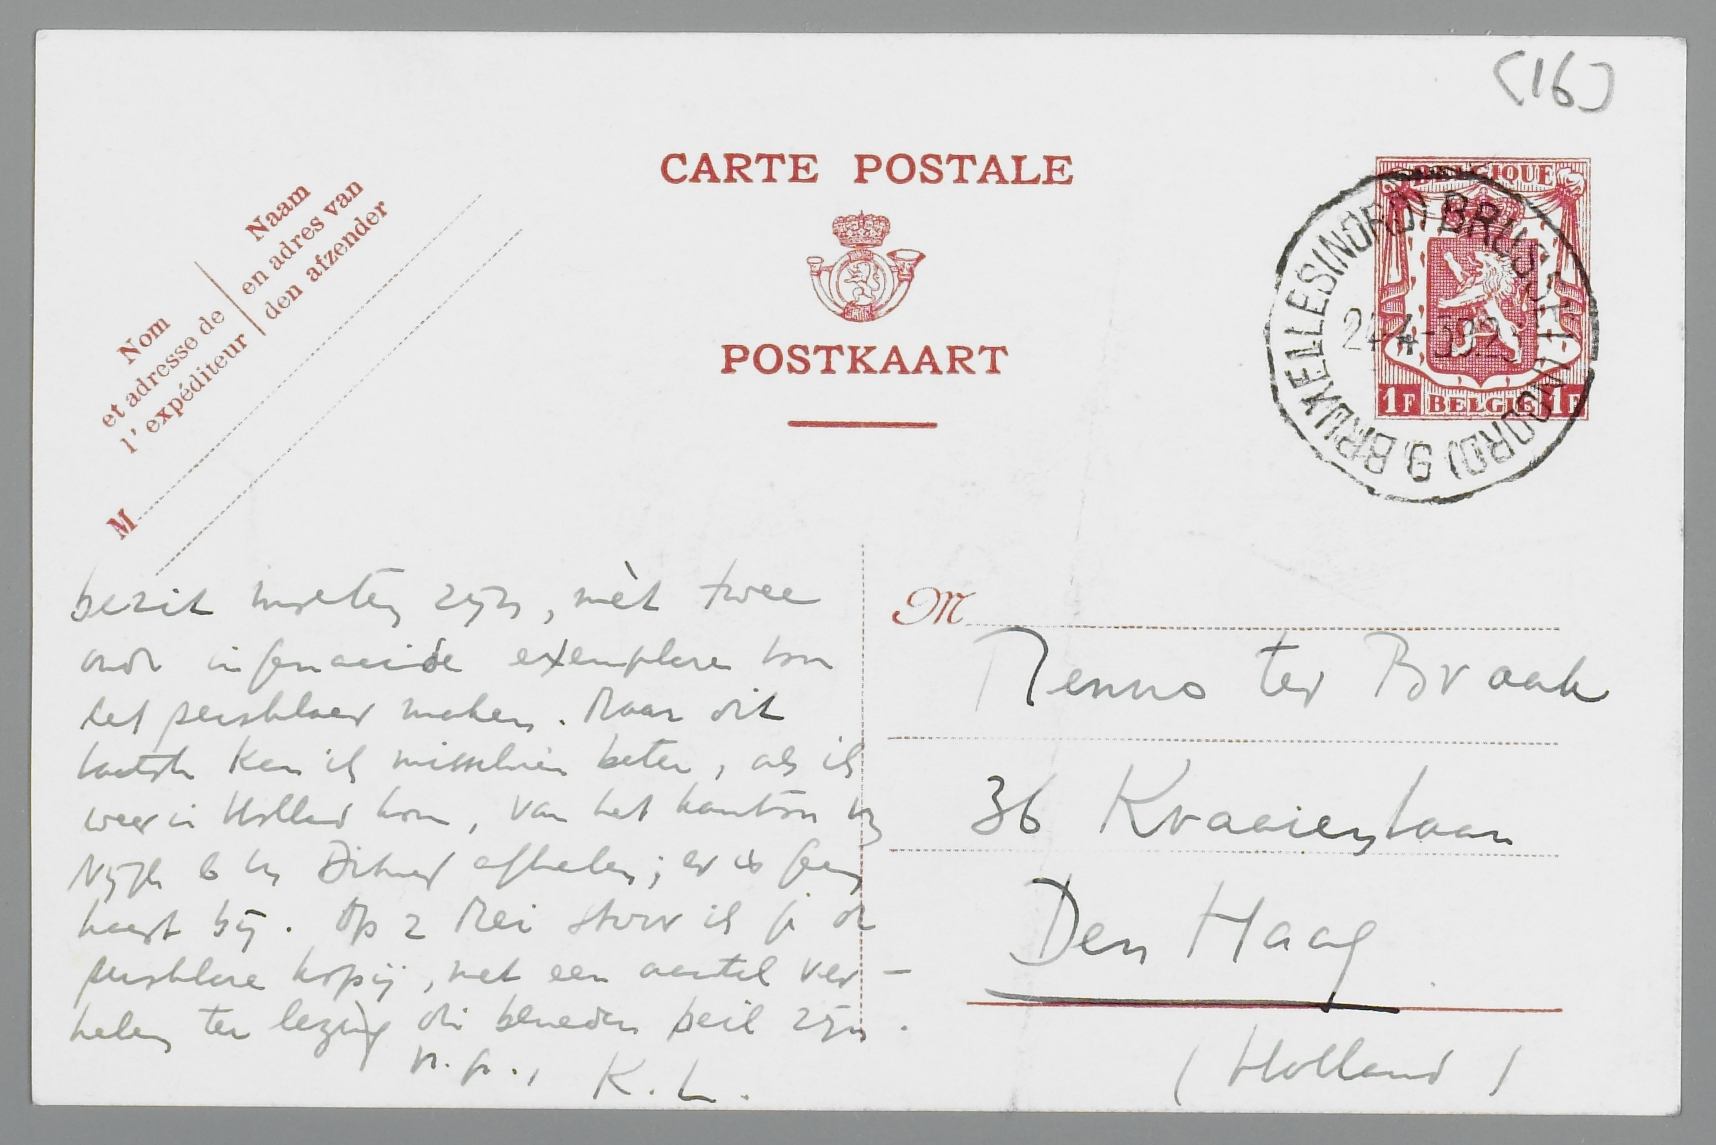 (16)
CARTE POSTALE
POSTKAART
Nom
et adresse de
l'expéditeur
Naam
en adres van
den afzender
M
BELGIQUE
1F BELGIE 1F
BRUXELLES (NORD) BRUSSEL (NOORD) 9
24-4-
bezit moeten zijn, mèt twee
exemplaren van
het maken. Maar dit
laatste kan ik misschien beter, als ik
weer in Holland kom, van het kantoor v.
Nijgh & v. Ditmar afhalen; er is geen
haast bij. Op 2 Mei stuur ik je de
kopij, met een aantal ver-
halen ter lezing die beneden peil zijn.
K. L.
M
Menno ter Braak
36 Kraaienlaan
Den Haag
(Holland)